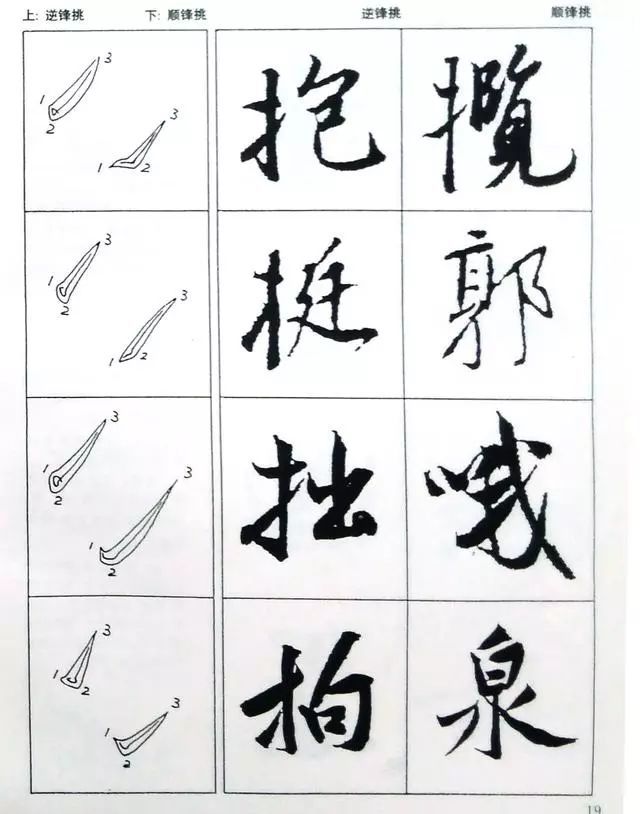 上: 逆锋挑 下: 顺锋挑 逆锋挑 顺锋挑
3
1
2
3
1 2
抱 揽
3
1
2
3
1 2
挺 郭
3
1
2
3
1
2
拙 哦
3
1 2
3
1
2
柏 泉
19